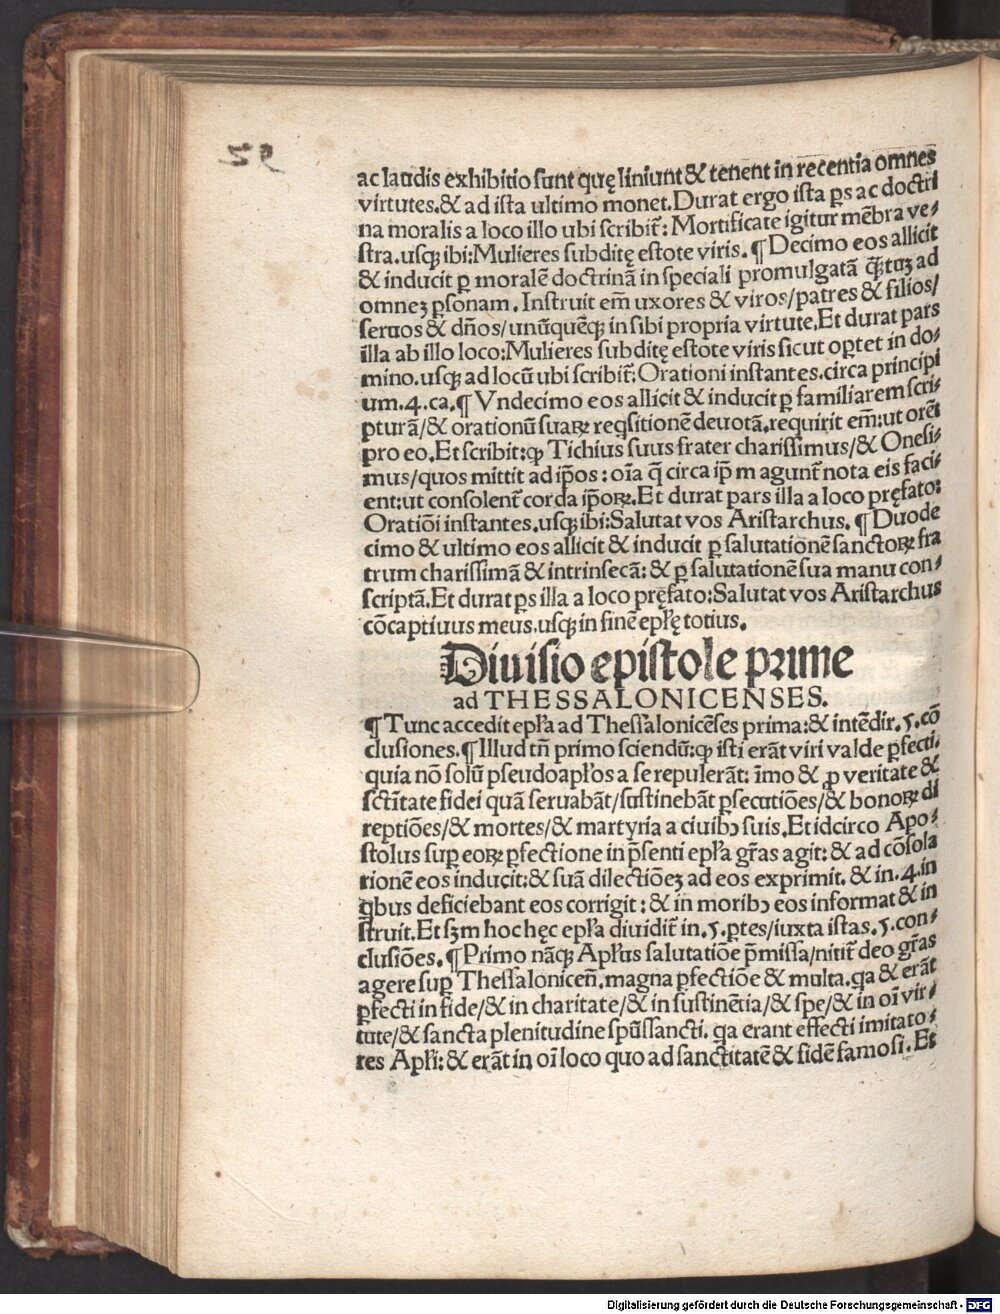 52
ac laudis exhibitio sunt quę liniunt & tenent in recentia omnes
virtutes.& ad ista ultimo monet.Durat ergo ista ꝑs ac doctri
na moralis a loco illo ubi scribit̃: Mortificate igitur mẽbra ve⸗
stra.usqꝫ ibi:Mulieres subditę estote viris.¶Decimo eos allicit
& inducit ꝑ moralẽ doctrinã in speciali promulgatã q̃tuꝫ ad
omneꝫ ꝑsonam.Instruit em̃ uxores & viros/patres & filios/
seruos & dños/unũquẽqꝫ in sibi propria virtute.Et durat pars
illa ab illo loco:Mulieres subditę estote viris sicut oꝑtet in do⸗
mino.usqꝫ ad locũ ubi scribit̃:Orationi instantes.circa principi
um.4.ca.¶Vndecimo eos allicit & inducit ꝑ familiarem scri⸗
pturã/& orationũ suaꝝ reqsitionẽ deuotã.requirit em̃:ut orẽt
pro eo.Et scribit:ꝙ Tichius suus frater charissimus/& Onesi⸗
mus/quos mittit ad ip̃os : oĩa q̃ circa ip̃m agunt̃ nota eis faci⸗
ent:ut consolent̃ corda ip̃oꝝ.Et durat pars illa a loco pręfato:
Oratiõi instantes.usqꝫ ibi:Salutat vos Aristarchus.¶Duode
cimo & ultimo eos allicit & inducit ꝑ salutationẽ sanctoꝝ fra
trum charissimã & intrinsecã: & ꝑ salutationẽ sua manu con⸗
scriptã.Et durat ꝑs illa a loco pręfato:Salutat vos Aristarchus
cõcaptiuus meus.usqꝫ in finẽ epłę totius.
Diuisio epistole prime
ad THESSALONICENSES.
¶Tunc accedit epła ad Thessalonicẽses prima:& intẽdit̃.5.cõ
clusiones.¶Illud tñ primo sciendũ:ꝙ isti erãt viri valde ꝑfecti.
quia nõ solũ pseudoapłos a se repulerãt: ĩmo & ꝓ veritate &
sctĩtate fidei quã seruabãt/sustinebãt ꝑsecutiões/& bonoꝝ di
reptiões/& mortes/& martyria a ciuibꝰ suis.Et idcirco Apo⸗
stolus suꝑ eoꝝ ꝑfectione in p̃senti epła gr̃as agit: & ad cõsola
tionẽ eos inducit:& suã dilectiõeꝫ ad eos exprimit. & in.4.in
qbus deficiebant eos corrigit : & in moribꝰ eos informat & in
struit.Et sꝫm hoc hęc epła diuidit̃ in.5.ꝑtes/iuxta istas.5.con⸗
clusiões.¶Primo nãqꝫ Apłus salutatiõe p̃missa/nitit̃ deo gr̃as
agere suꝑ Thessaloniceñ.magna ꝑfectiõe & multa.qa & erãt
ꝑfecti in fide/& in charitate/& in sustinẽtia/& spe/& in oĩ vir⸗
tute/& sancta plenitudine spũssancti. qa erant effecti imitato⸗
res Apłi: & erãt in oĩ loco quo ad sanctitatẽ & fidẽ famosi. Et
Digitalisierung gefördert durch die Deutsche Forschungsgemeinschaft - DFG